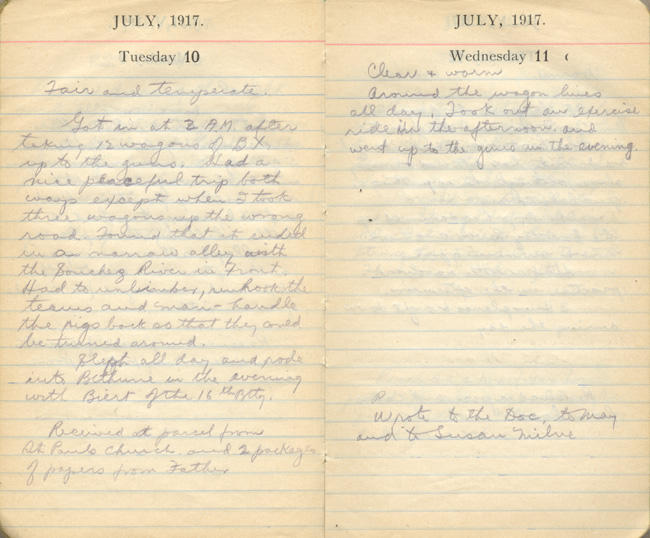 JULY, 1917.
Tuesday 10
Fair and temperate.
Got in at 2 A.M. after
taking 12 wagons of BX
up to the guns. Had a
nice peaceful trip both
ways except when I took
three wagons up the wrong
road. Found that it ended
in a narrow alley with
the Souchez River in front.
Had to unlimber, unhook the
teams and man-handle
the rigs back so that they could
be turned around.
Slept all day and rode
into Bethune in the evening
with Biert of the 16th Bty.
Received a parcel from
St Pauls Church and 2 packages
of papers from Father
JULY, 1917.
Wednesday 11
Clear & warm
Around the wagon lines
all day. Took out an exercise
ride in the afternoon and
went up to the guns in the evening.
Wrote to the Doc, to May
and to Susan Milne